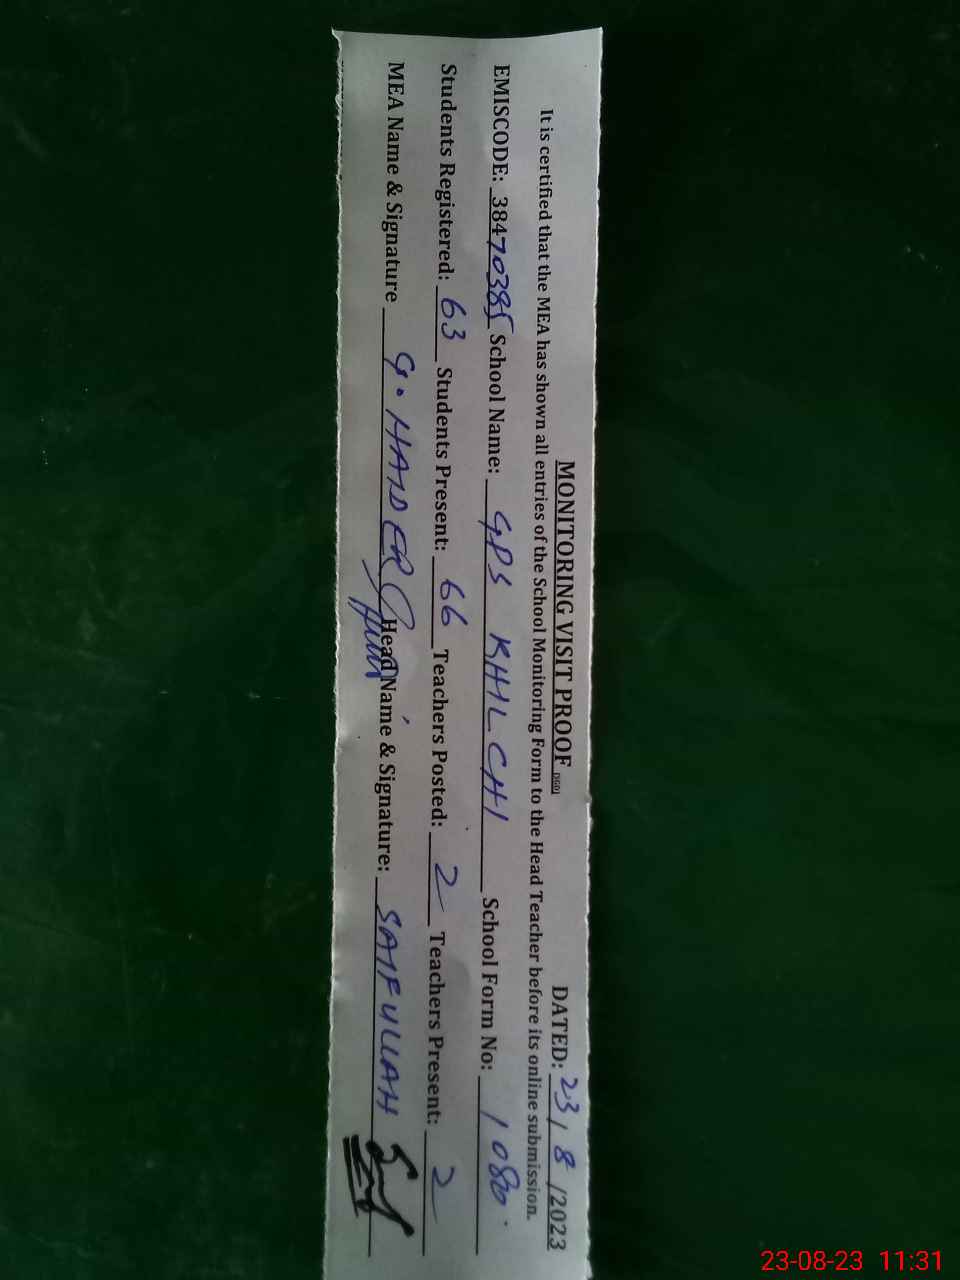 MONITORING VISIT PROOF DATED: 23/8/2023
It is certified that the MEA has shown all entries of the School Monitoring Form to the Head Teacher before its online submission.
EMISCODE: 38470385 School Name: GPS KHILCHI School Form No: 1080
Students Registered: 63 Students Present: 66 Teachers Posted: 2 Teachers Present: 2
MEA Name & Signature G. HAIDER Head Name & Signature: SAIFULLAH
23-08-23 11:31